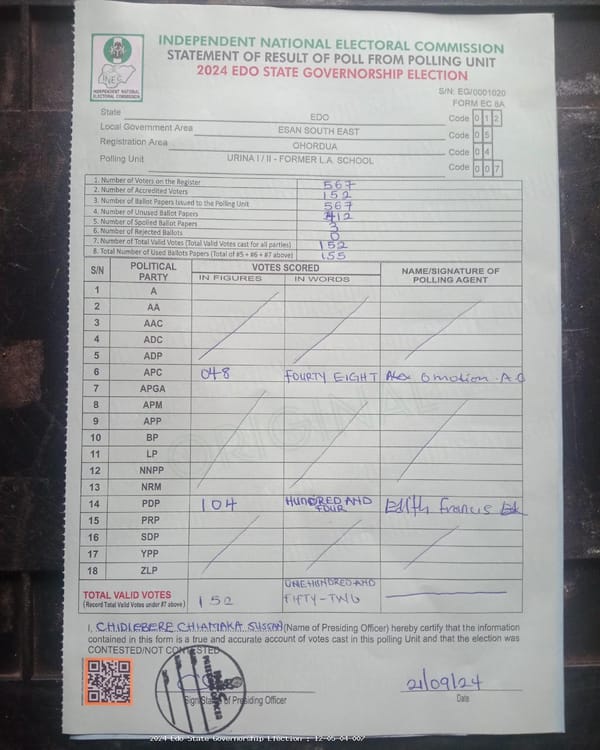 INDEPENDENT NATIONAL ELECTORAL COMMISSION
STATEMENT OF RESULT OF POLL FROM POLLING UNIT
2024 EDO STATE GOVERNORSHIP ELECTION
INEC
INDEPENDENT NATIONAL
ELECTORAL COMMISSION
S/N: EG/0001020
FORM EC 8A
State EDO Code 0 1 2
Local Government Area ESAN SOUTH EAST Code 0 5
Registration Area OHORDUA Code 0 4
Polling Unit URINA I / II - FORMER L.A. SCHOOL Code 0 0 7
1. Number of Voters on the Register 567
2. Number of Accredited Voters 152
3. Number of Ballot Papers Issued to the Polling Unit 567
4. Number of Unused Ballot Papers 412
5. Number of Spoiled Ballot Papers 3
6. Number of Rejected Ballots 0
7. Number of Total Valid Votes (Total Valid Votes cast for all parties) 152
8. Total Number of Used Ballots Papers (Total of #5 + #6 + #7 above) 155
S/N POLITICAL PARTY VOTES SCORED NAME/SIGNATURE OF POLLING AGENT
IN FIGURES IN WORDS
1 A
2 AA
3 AAC
4 ADC
5 ADP
6 APC 048 FOURTY EIGHT Alex Omotion A.O
7 APGA
8 APM
9 APP
10 BP
11 LP
12 NNPP
13 NRM
14 PDP 104 HUNDRED AND FOUR Edith Francis
15 PRP
16 SDP
17 YPP
18 ZLP
ORIGINAL
TOTAL VALID VOTES 152 ONE HUNDRED AND FIFTY-TWO
(Record Total Valid Votes under #7 above)
I, CHIDIEBERE CHIAMAKA SUSSAN (Name of Presiding Officer) hereby certify that the information
contained in this form is a true and accurate account of votes cast in this polling Unit and that the election was
CONTESTED/NOT CONTESTED
21/09/24
Signature of Presiding Officer Date
2024 Edo State Governorship Election : 12-05-04-007